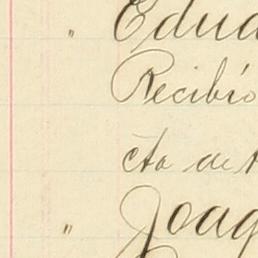 " Edua
Recibío
cta de
" Joaq